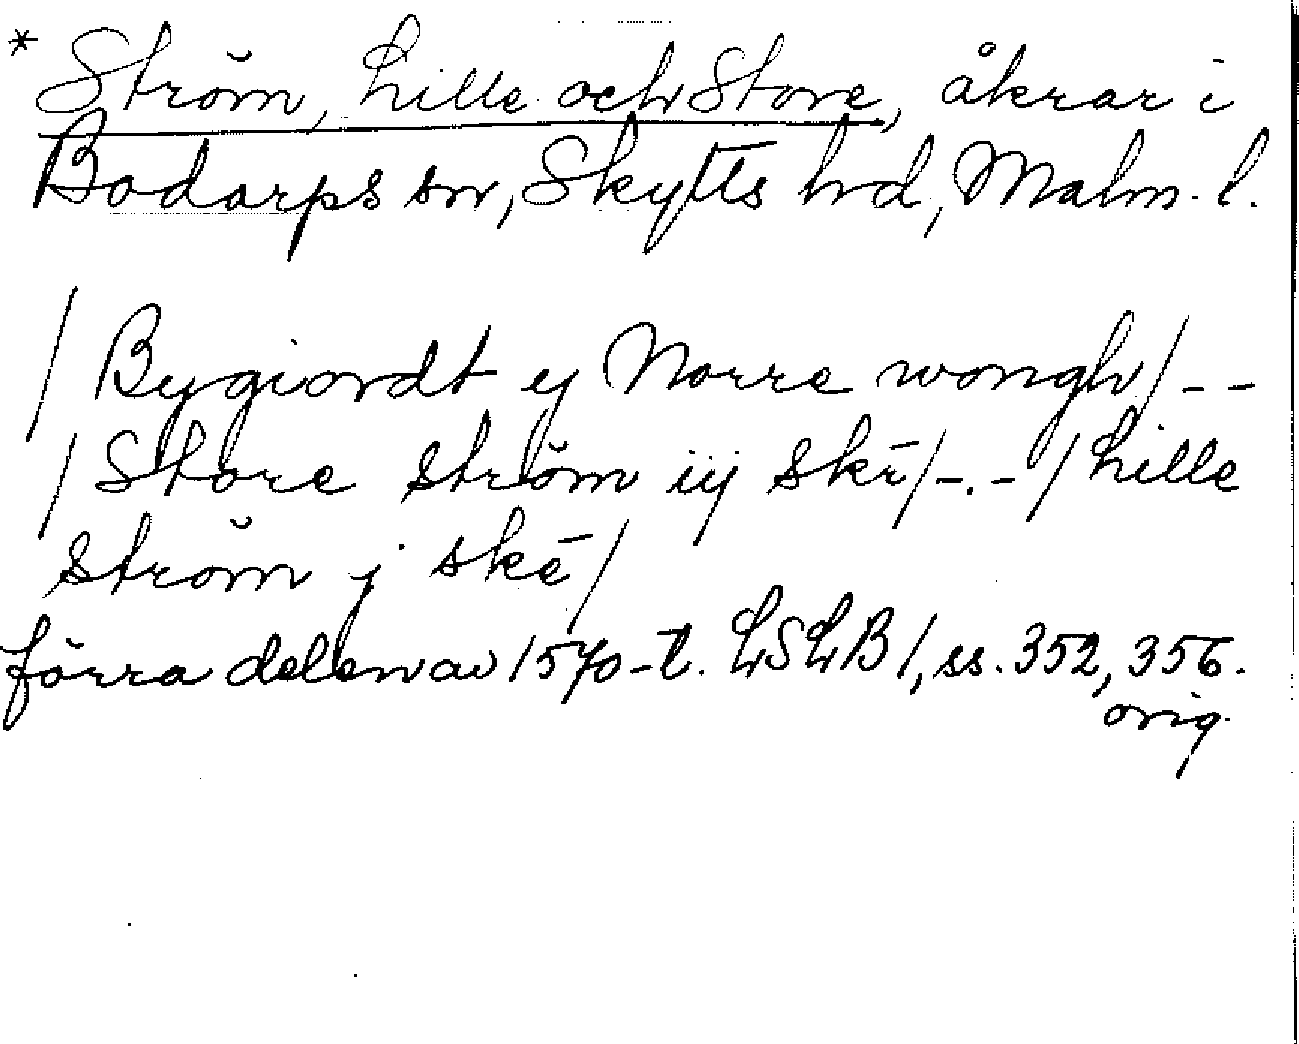 * Ström, Lille och Store, åkrar i
Bodarps sn, Skytts hd, Malm. l.
/ Bygiordt ej Norre wongh / - -
/ Store ström iij skē / -.- / Lille
ström j skē /
förra delen av 1570-t. LSLB 1, ss. 352, 356.
orig.